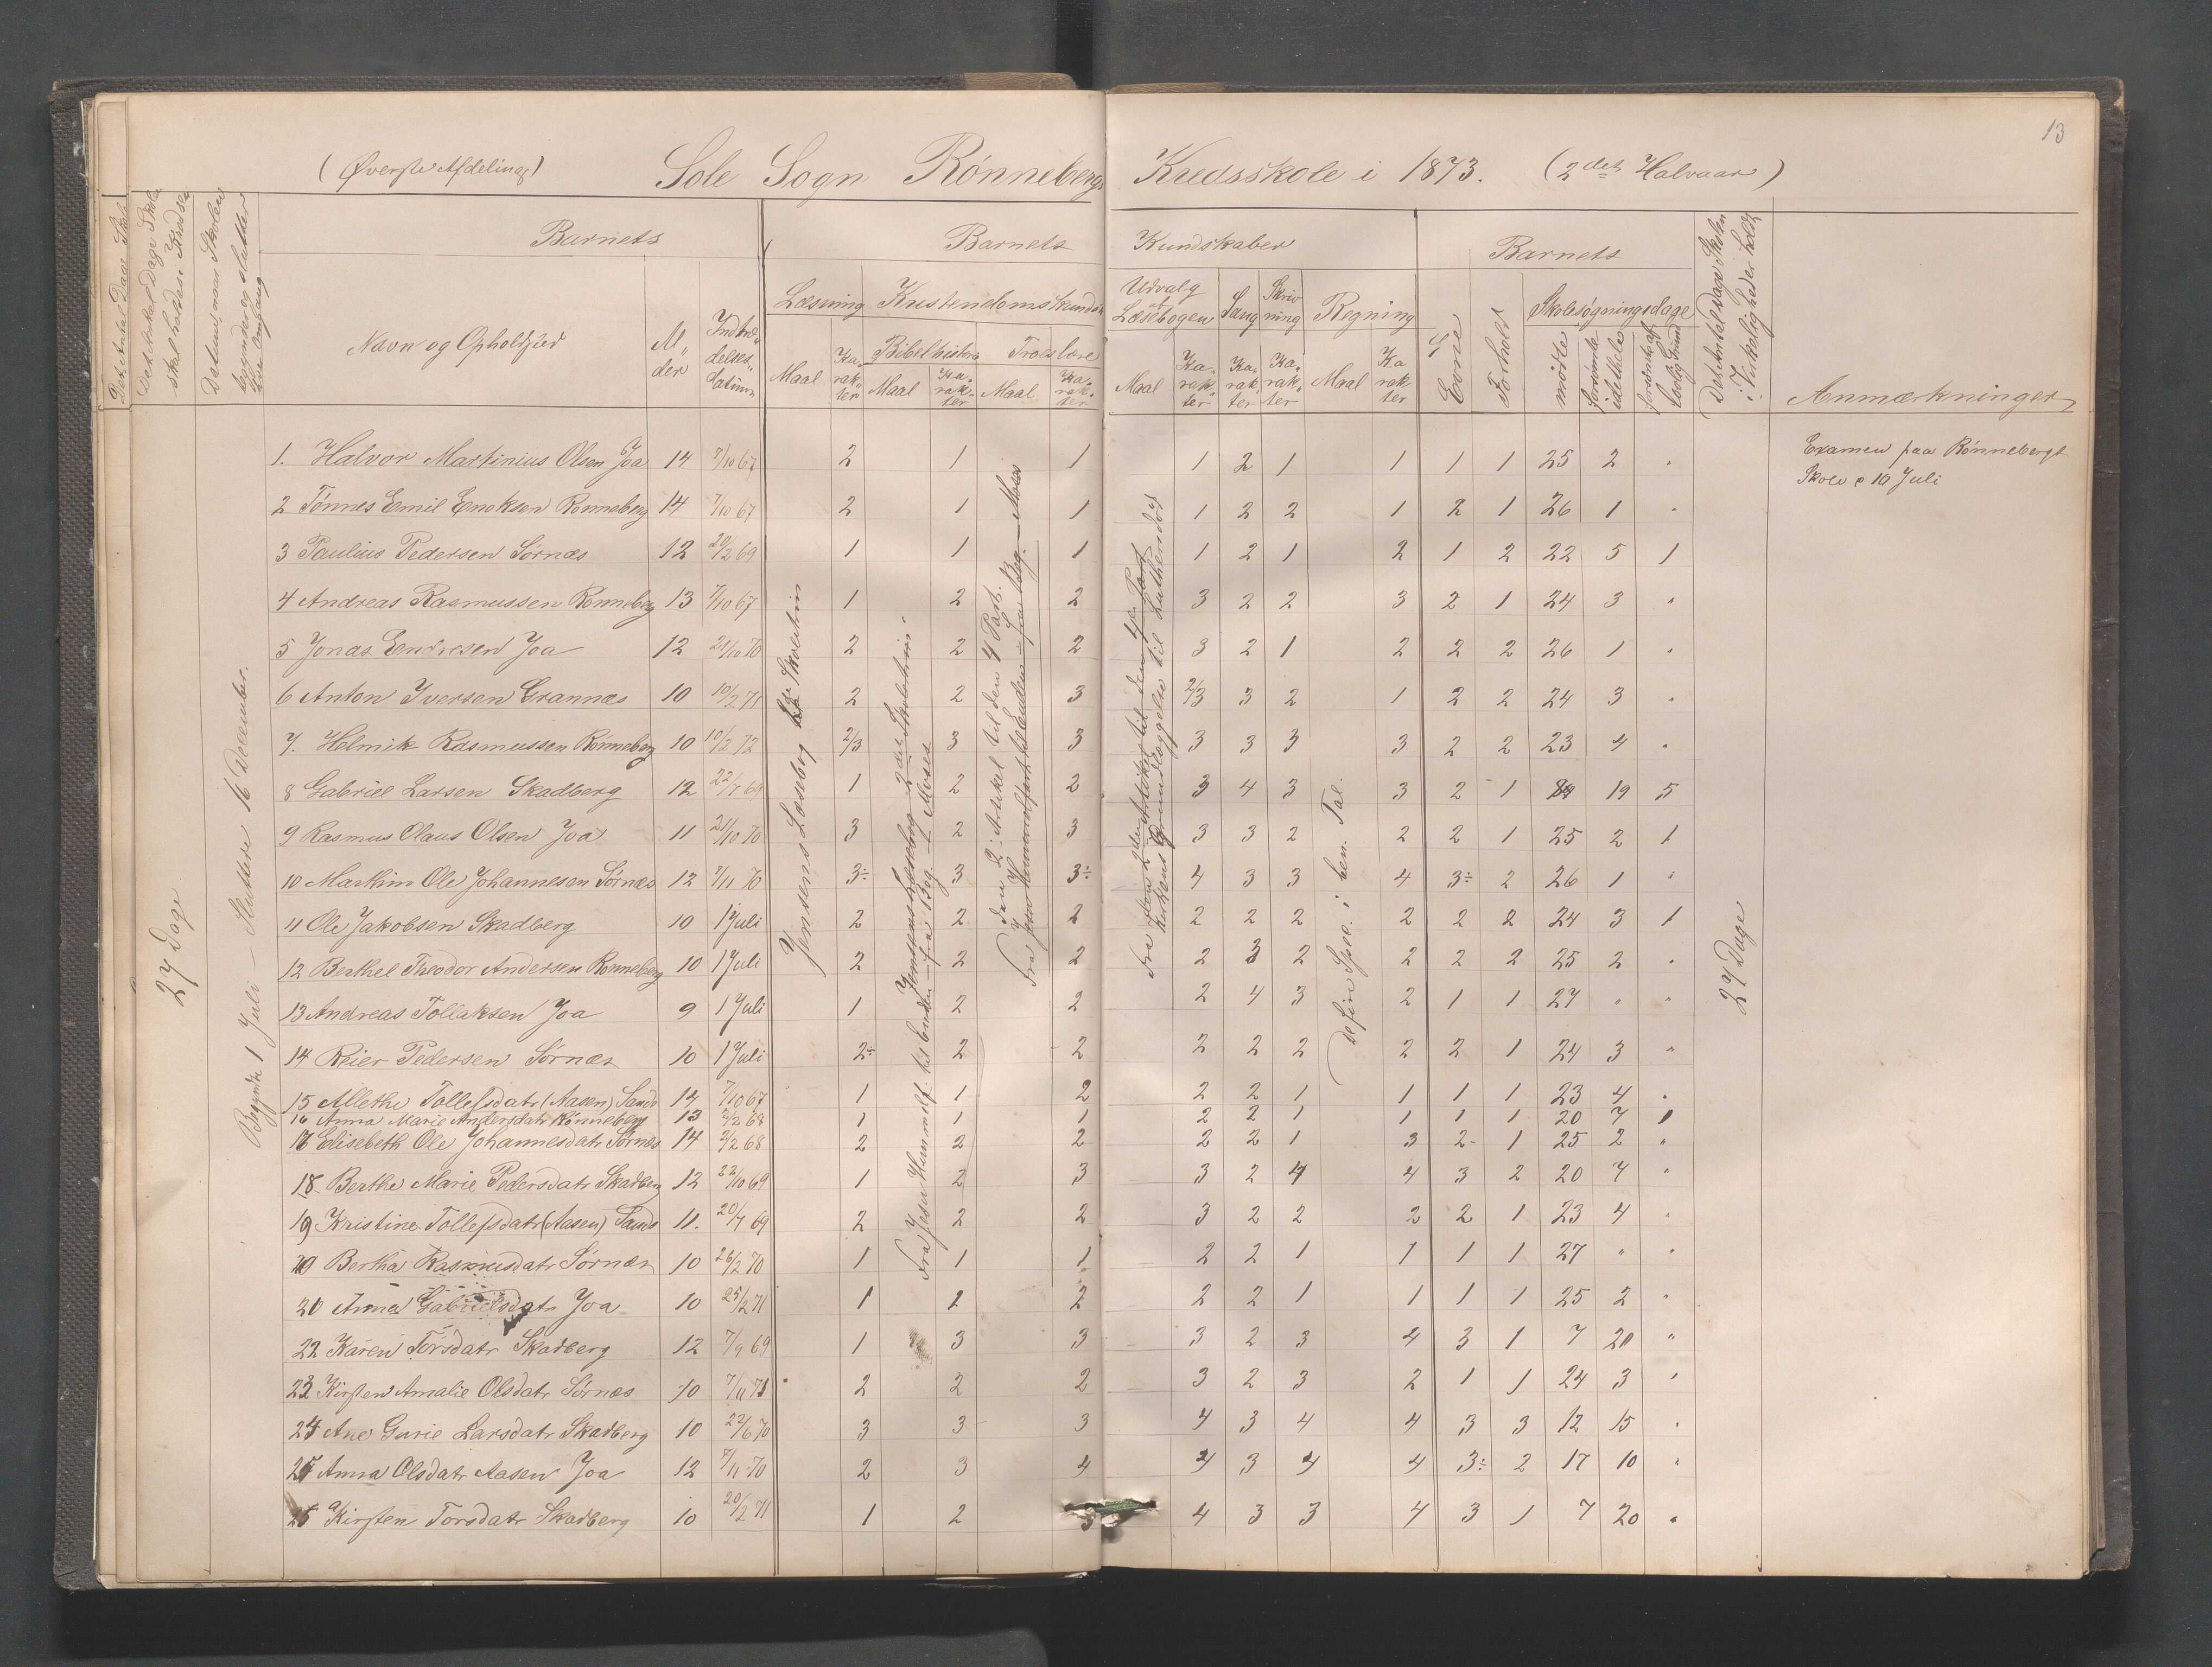 13
(Øverste Afdeling) Sole Sogn Rønneberg Kredsskole i 1873. (2det Halvaar)
Det Antal Dage Skolen skal holdes i Kredsen
Datum, naar Skolen begynder og slutter
Barnets
Navn og Opholdssted
Alder
Indtrædelsesdatum
Barnets Kundskaber
Læsning Kristendomskundsk
Bibelhistorie Troeslære
Udvalg af Læsebogen Sang Skrivning Regning
Maal Karakter Maal Karakter Maal Karakter Maal Karakter Karakter Karakter Maal Karakter
Barnets
Evne Forhold
Skolesøgningsdage
mødte forsømte i det Hele forsømte af lovlig Grund
Det Antal Dage Skolen i Virkeligheden holdt
Anmærkninger
27 Dage
Begyndte 1 Juli – Sluttede 16 December.
27 Dage
Examen paa Rønnebergs
Skole 10 Juli
1. Halvor Martinius Olsen Joa 14 7/10 67 2 1 1 1 2 1 1 1 1 25 2 "
2 Tønnes Emil Enoksen Rønneberg 14 7/10 67 2 1 1 1 2 2 1 2 1 26 1 "
3 Paulius Pedersen Sørnæs 12 20/2 69 1 1 1 1 2 1 2 1 2 22 5 1
4 Andreas Rasmussen Rønneberg 13 7/10 67 1 2 2 3 2 2 3 2 1 24 3 "
5 Jonas Endresen Joa 12 21/10 70 2 2 2 3 2 1 2 2 2 26 1 "
6 Anton Iversen Grannæs 10 10/2 71 2 2 3 2/3 3 2 1 2 2 24 3 "
7. Helmik Rasmussen Rønneberg 10 10/2 72 2/3 3 3 3 3 3 3 2 2 23 4 "
8 Gabriel Larsen Skadberg 12 22/7 69 1 2 2 3 4 3 3 2 1 19 5
9 Rasmus Olaus Olsen Joa 11 21/10 70 3 2 3 3 3 2 2 2 1 25 2 1
10 Marthin Ole Johannesen Sørnæs 12 7/11 70 3÷ 3 3÷ 4 3 3 4 3÷ 2 26 1 "
11 Ole Jakobsen Skadberg 10 1 Juli 2 2 2 2 2 2 2 2 2 24 3 1
12 Berthel Theodor Andersen Rønneberg 10 1 Juli 2 2 2 2 3 2 2 2 2 25 2 "
13 Andreas Tollaksen Joa 9 1 Juli 1 2 2 2 4 3 2 1 1 27 " "
14 Reier Pedersen Sørnæs 10 1 Juli 2÷ 2 2 2 2 2 2 2 1 24 3 "
15 Allethe Tollefsdatr (Aasen) Sande 14 7/10 67 1 1 2 2 2 1 1 1 1 23 4 "
16 Anna Marie Andersdatr Rønneberg 13 2/2 68 1 1 1 2 2 1 1 1 1 20 7
Elisebeth Ole Johannesdatr Sørnæs 14 2/2 68 2 2 2 2 2 1 3 2 1 25 2 "
18 Berthe Marie Pedersdatr Skadberg 12 22/10 69 1 2 3 3 2 4 4 3 2 20 7 "
19 Kristine Tollefsdatr (Aasen) Sande 11. 20/7 69 2 2 2 3 2 2 2 2 1 23 4 "
Bertha Rasmusdatr Sørnæs 10 26/2 70 1 1 1 2 2 1 1 1 1 27 " "
Anna Gabrielsdatr Joa 10 25/2 71 1 1 2 2 2 1 1 1 1 25 2 "
22 Karen Torsdatr Skadberg 12 7/9 69 1 3 3 3 2 3 4 3 1 7 20 "
23 Kirsten Amalie Olsdatr Sørnæs 10 7/11 71 2 2 2 3 2 3 2 1 1 24 3 "
24 Ane Gurie Larsdatr Skadberg 10 22/6 70 3 3 3 4 3 4 4 3 3 12 15 "
25 Anna Olsdatr Aasen Joa 12 7/11 70 2 3 4 4 3 4 4 3÷ 2 17 10 "
Kirsten Torsdatr Skadberg 10 20/2 71 1 2 3 4 3 3 4 3 1 7 20 "
Jensens Læsebog Skoletrin
Jensens Læsebog 2det Skoletrin
Fra Jesu Himmelf. til Enden – fra Beg. – Moses
Fra den 2. Artikel til den 4 Part.
Fra Jesu Himmelfart til Enden – fra Beg. – Moses
Fra den 2den Artikel til den 4de Part
Kirkens Grundlæggelse til Luthersdød
De fire Spec. i ben. Tal.